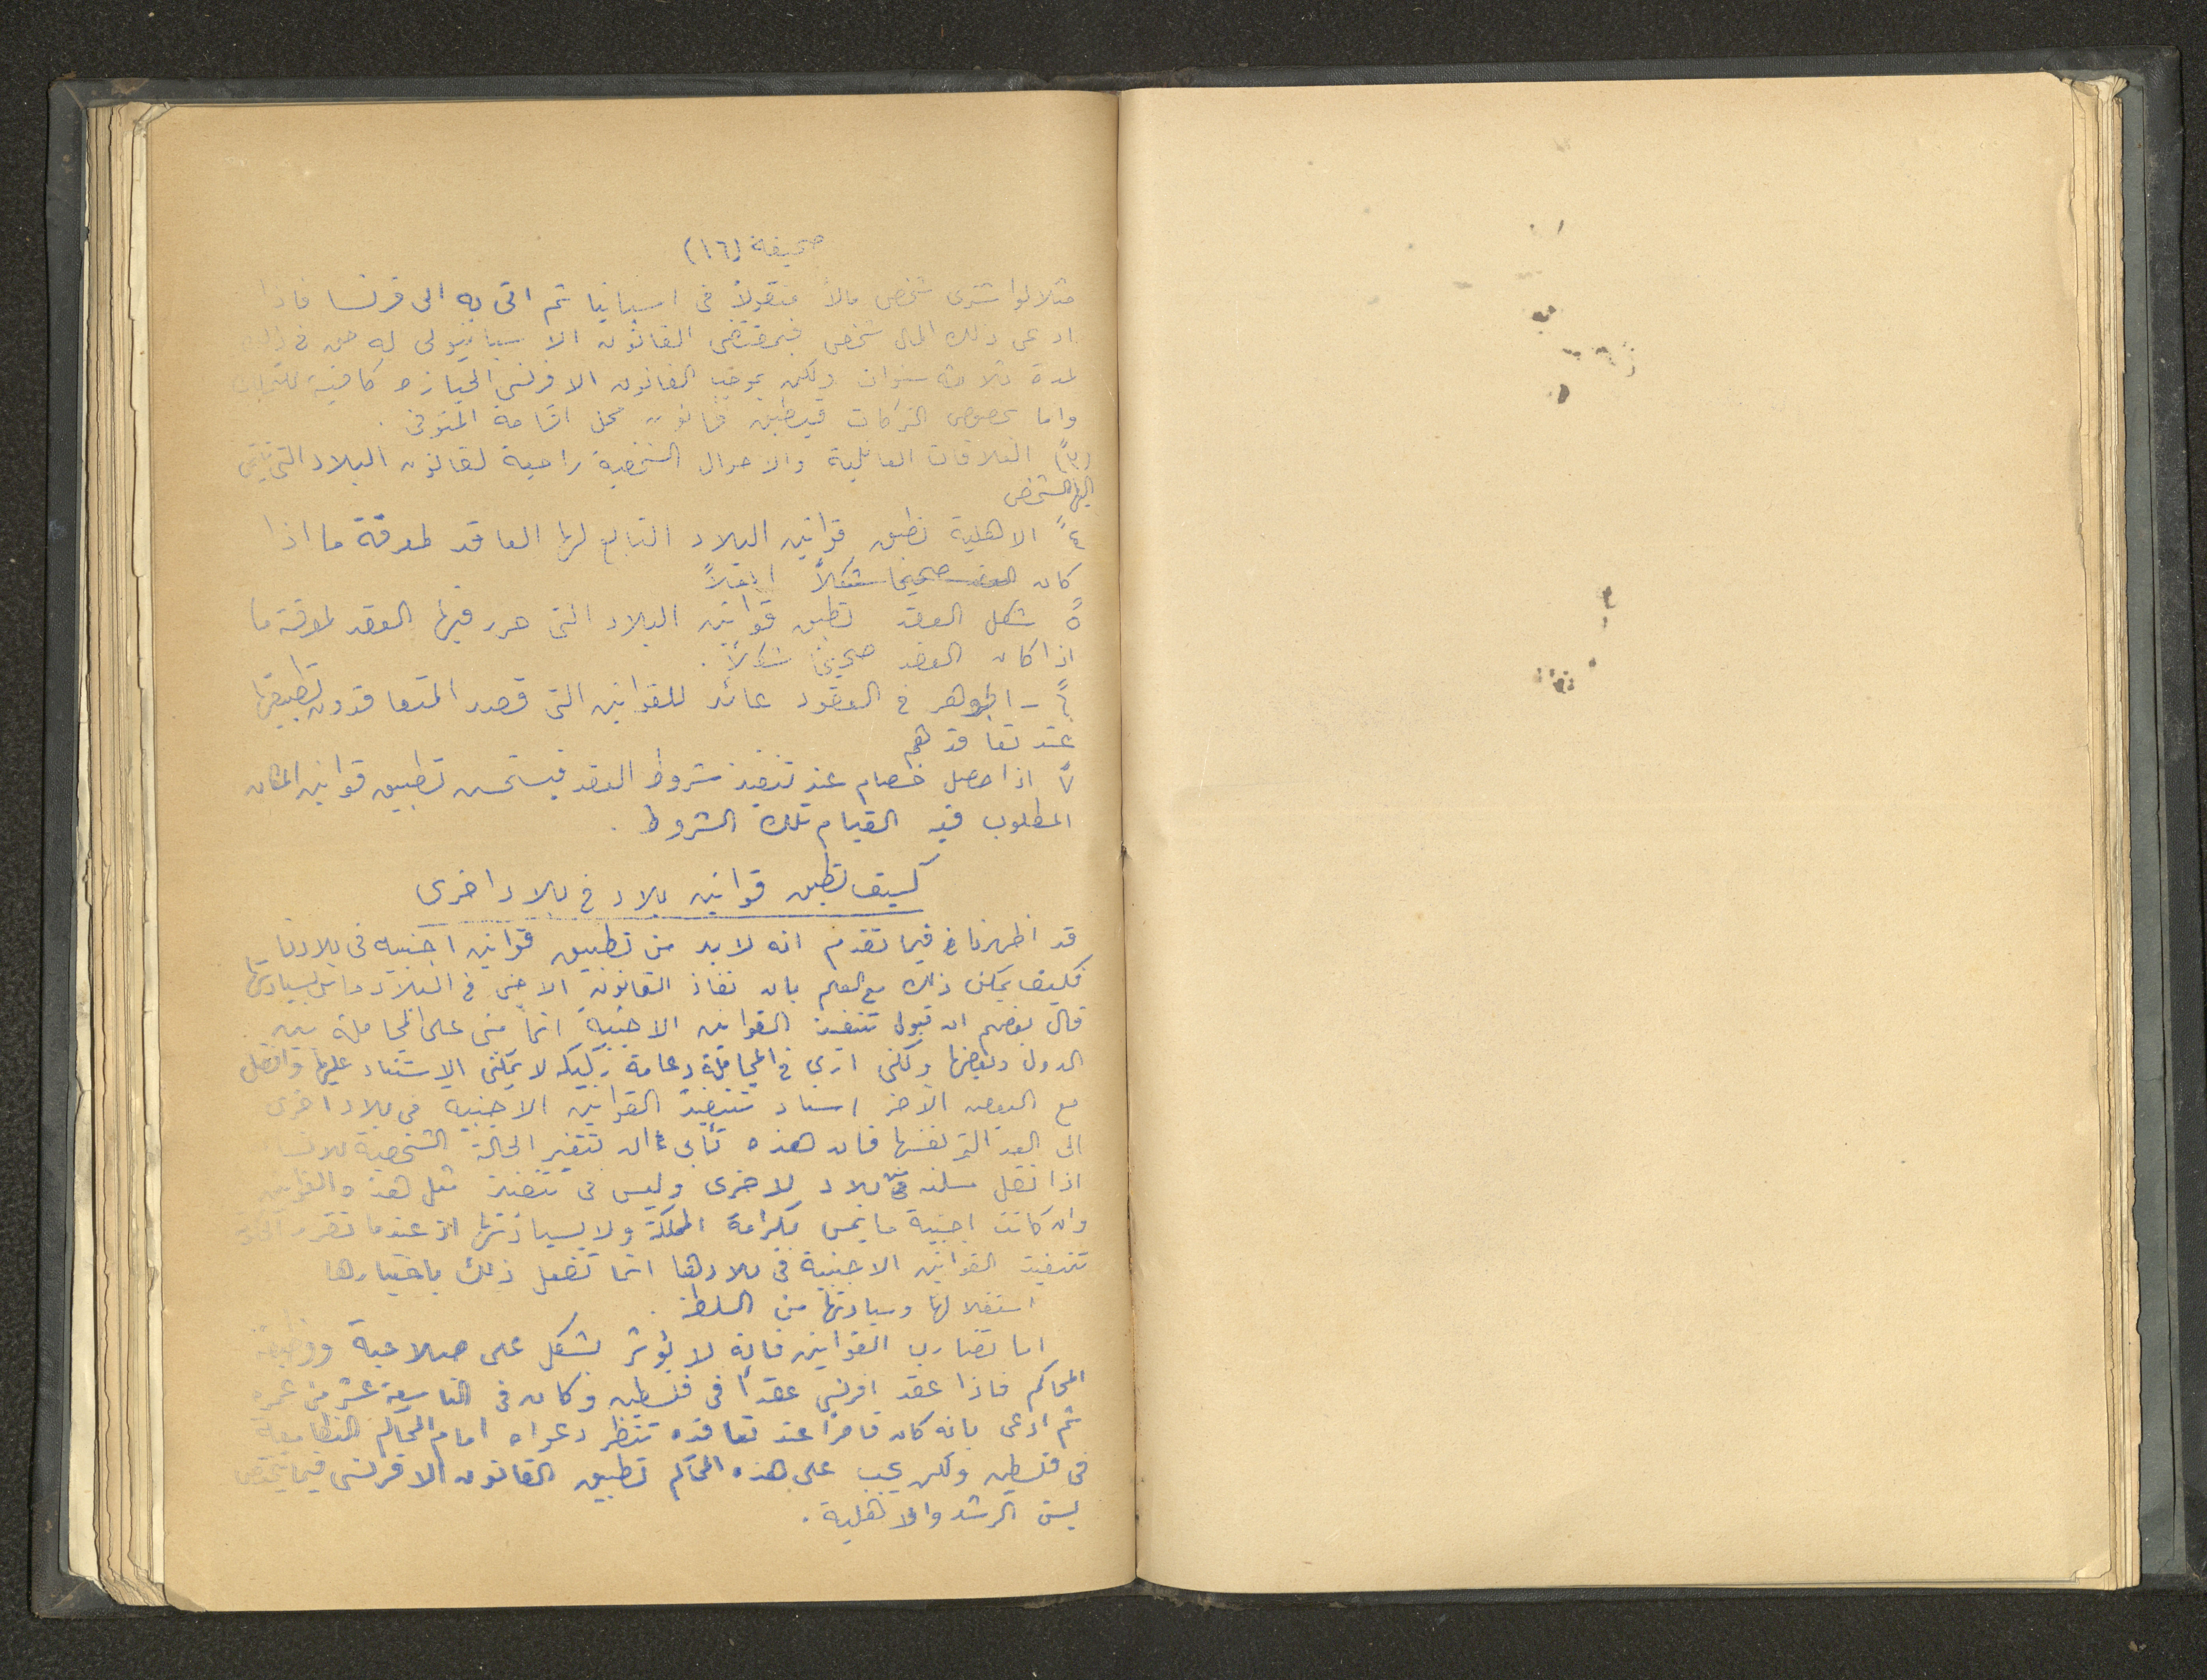 صحيفة (١٦)
مثلا لو اشترى شخص مالاً منقولاً فى اسبانيا ثم اتى به الى فرنسا فاذا
ادعى ذلك المال شخص فبمقتضى القانون الاسبانيولى له حق فى
لمدة ثلاثة سنوات ولكن بموجب القانون الافرنسى الحيازه كافية
واما بخصوص التركات فيطبق قانون محل اقامة المتوفى .
(٣ً) العلاقات العائلية والاحوال الشخصية راجعة لقانون البلاد التى ينتمى
اليها الشخص
٤ً الاهلية تطبق قوانين البلاد التابع لها العاقد لمعرفة ما اذا
كان العقد صحيحا شكلاً اهلاً
٥ً شكل العقد تطبق قوانين البلاد التى حرر فيها العقد لمعرفة ما
اذا كان العقد صحيحا شكلاً .
٦ً - الجوهر فى العقود عائد للقوانين التى قصد المتعاقدون تطبيقها
عند تعاقدهم
٧ً اذا حصل خصام عند تنفيذ شروط العقد فيستحسن تطبيق قوانين المكان
المطلوب فيه القيام بتلك الشروط .
كيف تطبق قوانين بلاد فى بلاد اخرى
قد اظهرنا فيما تقدم انه لا بد من تطبيق قوانين اجنبيه فى بلادنا
فكيف يمكن ذلك مع العلم بان نفاذ القانون الاجنبى فى البلاد ماس بسيادتها
قال بعضهم ان قبول تنفيذ القوانين الاجنبية انما بنى على المجاملة بين
الدول وبعضها ولكنى ارى فى المجاملة دعامة ركيكه لا يمكننى الاستناد عليها وافضل
مع البعض الآخر اسناد تنفيذ القوانين الاجنبية فى بلاد اخرى
الى العدالة نفسها فان هذه تأبى ان تتغير الحالة الشخصية للانسان
اذا نقل مسكنه من بلاد لاخرى وليس فى تنفيذ مثل هذه القوانين
وان كانت اجنبية ما يمس بكرامة المملكة ولا بسيادتها اذ عندما تقرر
تنفيذ القوانين الاجنبية فى بلادها انما تفعل ذلك باختيارها
استقلالها وسيادتها من السلطة .
اما تضارب القوانين فانه لا يؤثر بشكل على صلاحية ووظيفة
المحاكم فاذا عقد افرنسى عقداً فى فلسطين وكان فى التاسعة عشر من عمره
ثم ادعى بانه كان قاصراً عند تعاقده تنظر دعواه امام المحاكم النظامية
فى فلسطين ولكن يجب على هذه المحاكم تطبيق القانون الافرنسى فيما يختص
بسن الرشد والاهلية .